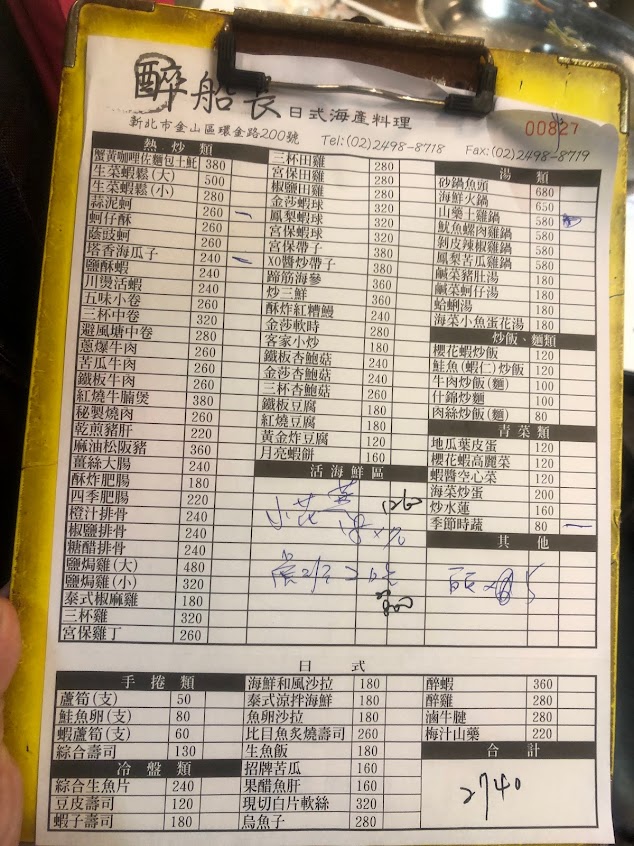 醉船長 日式海產料理
00827
新北市金山區環金路200號 Tel:(02)2498-8718 Fax:(02)2498-8719
熱炒類
蟹黃咖哩佐麵包土魠 380
生菜蝦鬆(大) 500
生菜蝦鬆(小) 280
蒜泥蚵 260
蚵仔酥 260 一
蔭豉蚵 260
塔香海瓜子 240
鹽酥蝦 240 一
川燙活蝦 240
五味小卷 260
三杯中卷 320
避風塘中卷 280
蔥爆牛肉 260
苦瓜牛肉 260
鐵板牛肉 260
紅燒牛腩煲 380
秘製燒肉 260
乾煎豬肝 220
麻油松阪豬 360
薑絲大腸 240
酥炸肥腸 180
四季肥腸 220
橙汁排骨 240
椒鹽排骨 240
糖醋排骨 240
鹽焗雞(大) 480
鹽焗雞(小) 320
泰式椒麻雞 180
三杯雞 320
宮保雞丁 260
三杯田雞 280
宮保田雞 280
椒鹽田雞 280
金莎蝦球 320
鳳梨蝦球 320
宮保蝦球 320
宮保帶子 380
XO醬炒帶子 380
蹄筋海蔘 360
炒三鮮 360
酥炸紅糟鰻 240
金莎軟時 280
客家小炒 180
鐵板杏鮑菇 240
金莎杏鮑菇 240
三杯杏鮑菇 260
鐵板豆腐 180
紅燒豆腐 180
黃金炸豆腐 120
月亮蝦餅 160
活海鮮區
1260
800
湯類
砂鍋魚頭 680
海鮮火鍋 650
山藥土雞鍋 580
魷魚螺肉雞鍋 580
剝皮辣椒雞鍋 580
鳳梨苦瓜雞鍋 580
鹹菜豬肚湯 180
鹹菜蚵仔湯 180
蛤蜊湯 180
海菜小魚蛋花湯 180
炒飯、麵類
櫻花蝦炒飯 120
鮭魚(蝦仁)炒飯 120
牛肉炒飯(麵) 100
什錦炒麵 100
肉絲炒飯(麵) 80
青菜類
地瓜葉皮蛋 120
櫻花蝦高麗菜 120
蝦醬空心菜 120
海菜炒蛋 200
炒水蓮 160
季節時蔬 80 一
其他
日式
手捲類
蘆筍(支) 50
鮭魚卵(支) 80
蝦蘆筍(支) 60
綜合壽司 130
冷盤類
綜合生魚片 240
豆皮壽司 120
蝦子壽司 180
海鮮和風沙拉 180
泰式涼拌海鮮 180
魚卵沙拉 180
比目魚炙燒壽司 260
生魚飯 180
招牌苦瓜 160
果醋魚肝 160
現切白片軟絲 320
烏魚子 280
醉蝦 360
醉雞 280
滷牛腱 280
梅汁山藥 220
合計
2740